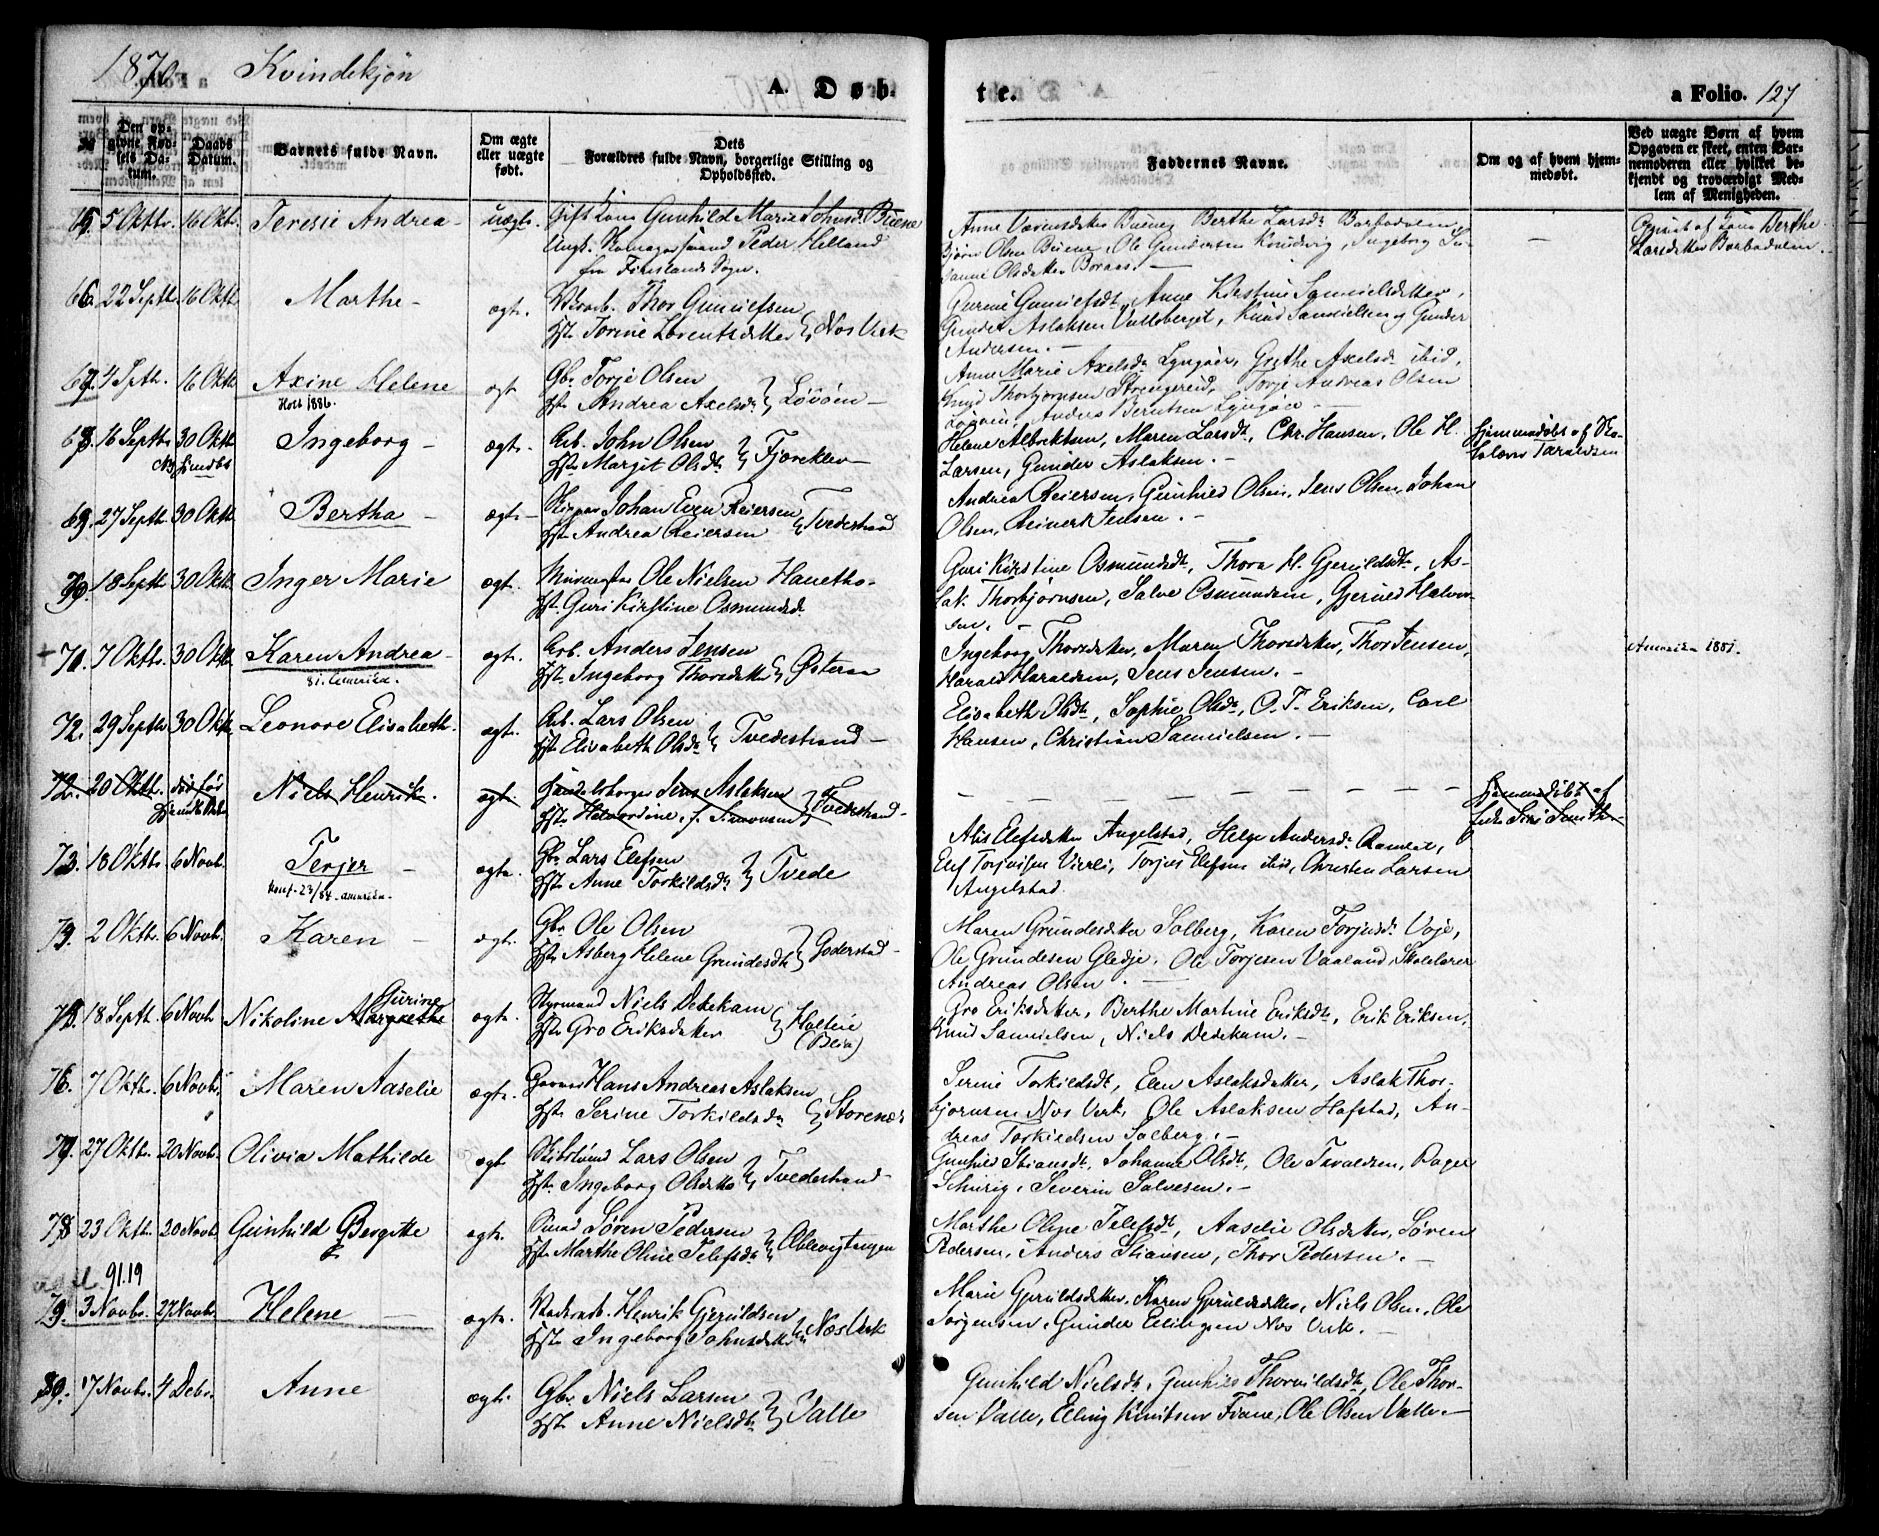 1870. Kvindekjön
A. Döb-
te.
a Folio. 127
No
Den opgivne Fødsels Datum.
Daabs Datum.
Barnets fulde Navn.
Om ægte eller uægte født.
Dets Forældres fulde Navn, borgerlige Stilling og Opholdssted.
Faddernes Navne.
Om og af hvem hjemmedøbt.
Ved uægte Børn af hvem Opgaven er skeet, enten Barnemoderen eller hvilket bekjendt og troværdigt Medlem af Menigheden.
65. 5 Oktbr. 16 Oktbr. Teresie Andrea - uægte. Gift Kone Gunhild Marie Johnsdt. Buene
Ungk. Peder Helland
fra Sogn.
Berthe Larsdt.
Bjørn Olsen Buene, Ole Gundersen Ingeborg Su-
sanne Olsdatter Boraas. -
af Kone Berthe
Larsdatter
66. 22 Septb. 16 Oktb. Marthe - ægte. Thor Gunulfsen
Hst. Torine Lorentsdatter Nes Verk
Gurine Gunulfsdt., Anne Kirstine Samuelsdatter,
Gunder Aslaksen Valleberget, Knud Samuelsen og Gunder
Andersen. -
67. 4 Sptb. 16 Oktb. Axine Helene ægt. Gbr. Torje Olsen
Holt 1886.
Hst. Andrea Axelsdt. Løvøen -
Anne Marie Axelsdt. Lyngøer, Grethe Axelsdt. ibid,
Knud Thorbjørnsen Strengereid, Torje Andreas Olsen
Løvøen, Anders Berntsen Lyngøer -
68. 16 Septb. 30 Oktb. Ingeborg - ægte. Arb. John Olsen
Hst. Margit Olsdt. Fjæreklev -
Helene Albrektsen, Maren Larsdt., Chr. Hansen, Ole H.
Larsen, Gunder Aslaksen. -
Hjemmedøbt af Sko-
lelærer Taraldsen
69. 27 Septb. 30 Oktb. Bertha - ægte - Skipper Johan Even Reiersen
Hst. Andrea Reiersen Tvedestrand
Andrea Reiersen, Gunhild Olsen, Jens Olsen, Johan
Olsen, Reinert Jensen. -
70. 18 Septb. 30 Oktb. Inger Marie ægte. Ole Nielsen Hanetho.
Hst. Guri Kirstine Osmundsd.
Guri Kirstine Osmundsdt., Thora H. Gjeruldsdt., As-
lak Thorbjørnsen, Salve Osmundsen, Gjeruld Halvor-
sen. -
71. 7 Oktb. 30 Oktb. Karen Andrea - ægte. Arb. Anders Jensen
81. Amerika.
Hst. Ingeborg Thorsdatter Østeraa
Ingeborg Thorsdatter, Maren Thorsdatter, Thor Jensen,
Harald Haraldsen, Jens Jensen. -
Amerika 1881.
72. 29 Septb. 30 Oktb. Leonore Elisabeth. ægte. Arb. Lars Olsen
Hst. Elisabeth Olsdt. Tvedestrand -
Elisabeth Olsdt., Sophie Olsdt., O. T. Eriksen, Carl
Hansen, Christian Samuelsen. -
72. 20 Oktb. død før Niels Henrik. ægte. Handelsborger Jens Aslaksen
Hst. Halvordine, f. Simonsen Tvedestrand -
Hjemmedøbt af
Smith
73. 18 Oktb. 6 Novb. Terjer - ægte. Gbr. Lars Elefsen
Konf. 23/84 - amerika -
Hst. Anne Torkildsdt. Tvede
Alis Elefsdatter Angelstad, Helge Andersdt.
Elef Torjusen Virrli, Torjus Elefsen ibid, Christen Larsen
Angelstad.
2 Oktb. 6 Novb. Karen - ægt. Gbr. Ole Olsen
Hst. Asberg Helene Grundesdt. Goderstad -
Maren Grundesdatter Solberg, Karen Torjusdt. Voje,
Ole Grundesen Gledje, Ole Torjesen Vaaland, Skolelærer
Andreas Olsen. -
75. 18 Septb. 6 Novb. Nikoline Margrethe Gurine ægte. Styrmand Niels Dedekam
Hst. Gro Eriksdatter Holteie
Gro Eriksdatter, Berthe Martine Eriksdt., Erik Eriksen,
Knud Samuelsen, Niels Dedekam. -
76. 7 Oktb. 6 Novb. Maren Aaselie ægte. Hans Andreas Aslaksen
Hst. Serine Torkildsdt. Storenæs
Serine Torkildsdt., Elen Aslaksdatter, Aslak Thor-
bjørnsen Nes Verk, Ole Aslaksen Hofstad, An-
dreas Torkildsen Solberg. -
77. 27 Oktb. 20 Novb. Olivia Mathilde ægt. Lars Olsen
Hst. Ingeborg Olsdatter Tvedestrand -
Gunhild Stiansdt., Johanne Olsdt., Ole Taraldsen, Roger
Schürig, Severin Salvesen. -
78. 23 Oktb. 20 Novb. Gunhild Bergitte ægte. Smed Søren Pedersen
Hst. Marthe Oline Telefsdt.
Marthe Oline Telefsdt., Aaselie Olsdatter, Søren
Pedersen, Anders Stiansen, Thor Pedersen. -
91.19
79. 3 Novbr. 27 Novbr. Helene - ægte. Henrik Gjeruldsen
Hst. Ingeborg Johnsdatter Næs Verk
Marie Gjeruldsdatter, Karen Gjeruldsdatter, Niels Olsen, Ole
Jørgensen, Gunder Ellingsen Nes Verk. -
80. 17 Novbr. 4 Debr. Anne ægte. Gbr. Niels Larsen
Hst. Anne Nielsdt. Valle
Gunhild Nielsdt., Gunhild Thorvildsdt., Ole Thor-
sen Valle, Elling Knutsen Fiane, Ole Olsen Valle. -